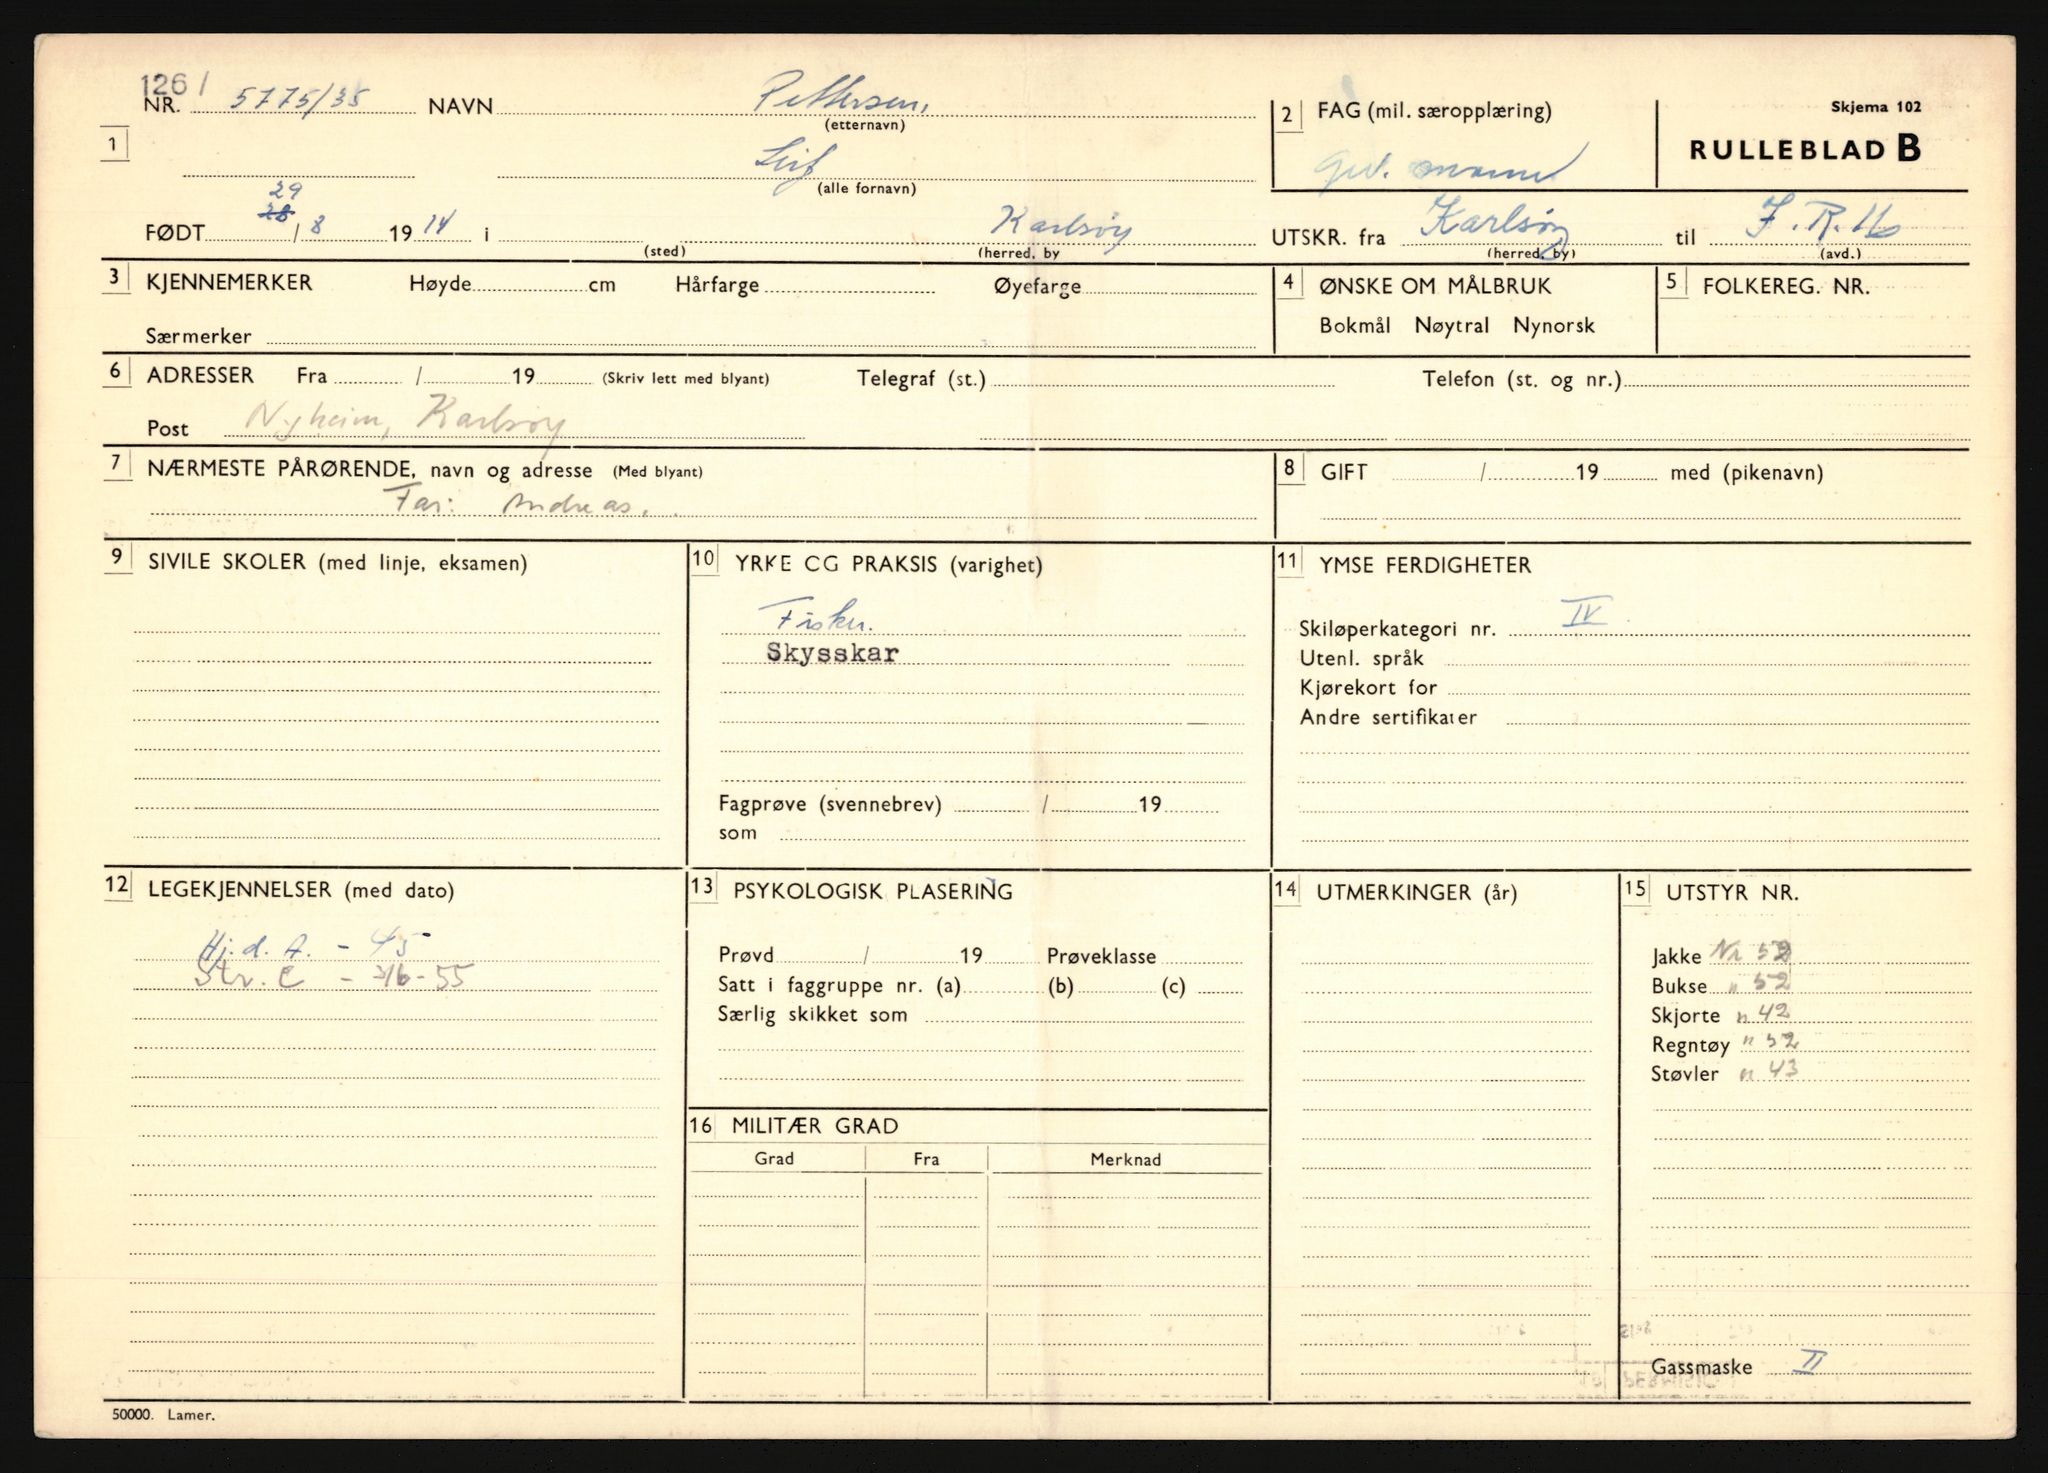 126 /
NR. 5775/35 NAVN Pettersen, (etternavn)
1
Leif (alle fornavn)
2 FAG (mil. særopplæring)
Gev. mann
Skjema 102
RULLEBLAD B
29
FØDT 28 / 8 19 14 i (sted) Karlsøy (herred, by
UTSKR. fra Karlsøy (herred, by) til I.R.16 (avd.)
3 KJENNEMERKER Høyde cm Hårfarge Øyefarge
Særmerker
4 ØNSKE OM MÅLBRUK
Bokmål Nøytral Nynorsk
5 FOLKEREG. NR.
6 ADRESSER Fra / 19 (Skriv lett med blyant) Telegraf (st.) Telefon (st. og nr.)
Post Nyheim, Karlsøy
7 NÆRMESTE PÅRØRENDE, navn og adresse (Med blyant)
Far: Andreas.
8 GIFT / 19 med (pikenavn)
9 SIVILE SKOLER (med linje, eksamen)
10 YRKE CG PRAKSIS (varighet)
Fisker.
Skysskar
Fagprøve (svennebrev) / 19
som
11 YMSE FERDIGHETER
Skiløperkategori nr. IV
Utenl. språk
Kjørekort for
Andre sertifikater
12 LEGEKJENNELSER (med dato)
Hj. d. A. - 45
Str. C - 3/6-55
13 PSYKOLOGISK PLASERING
Prøvd / 19 Prøveklasse
Satt i faggruppe nr. (a) (b) (c)
Særlig skikket som
14 UTMERKINGER (år)
15 UTSTYR NR.
Jakke Nr 52
Bukse " 52
Skjorte " 42
Regntøy " 52
Støvler " 43
Gassmaske II
16 MILITÆR GRAD
Grad Fra Merknad
50000. Lamer.